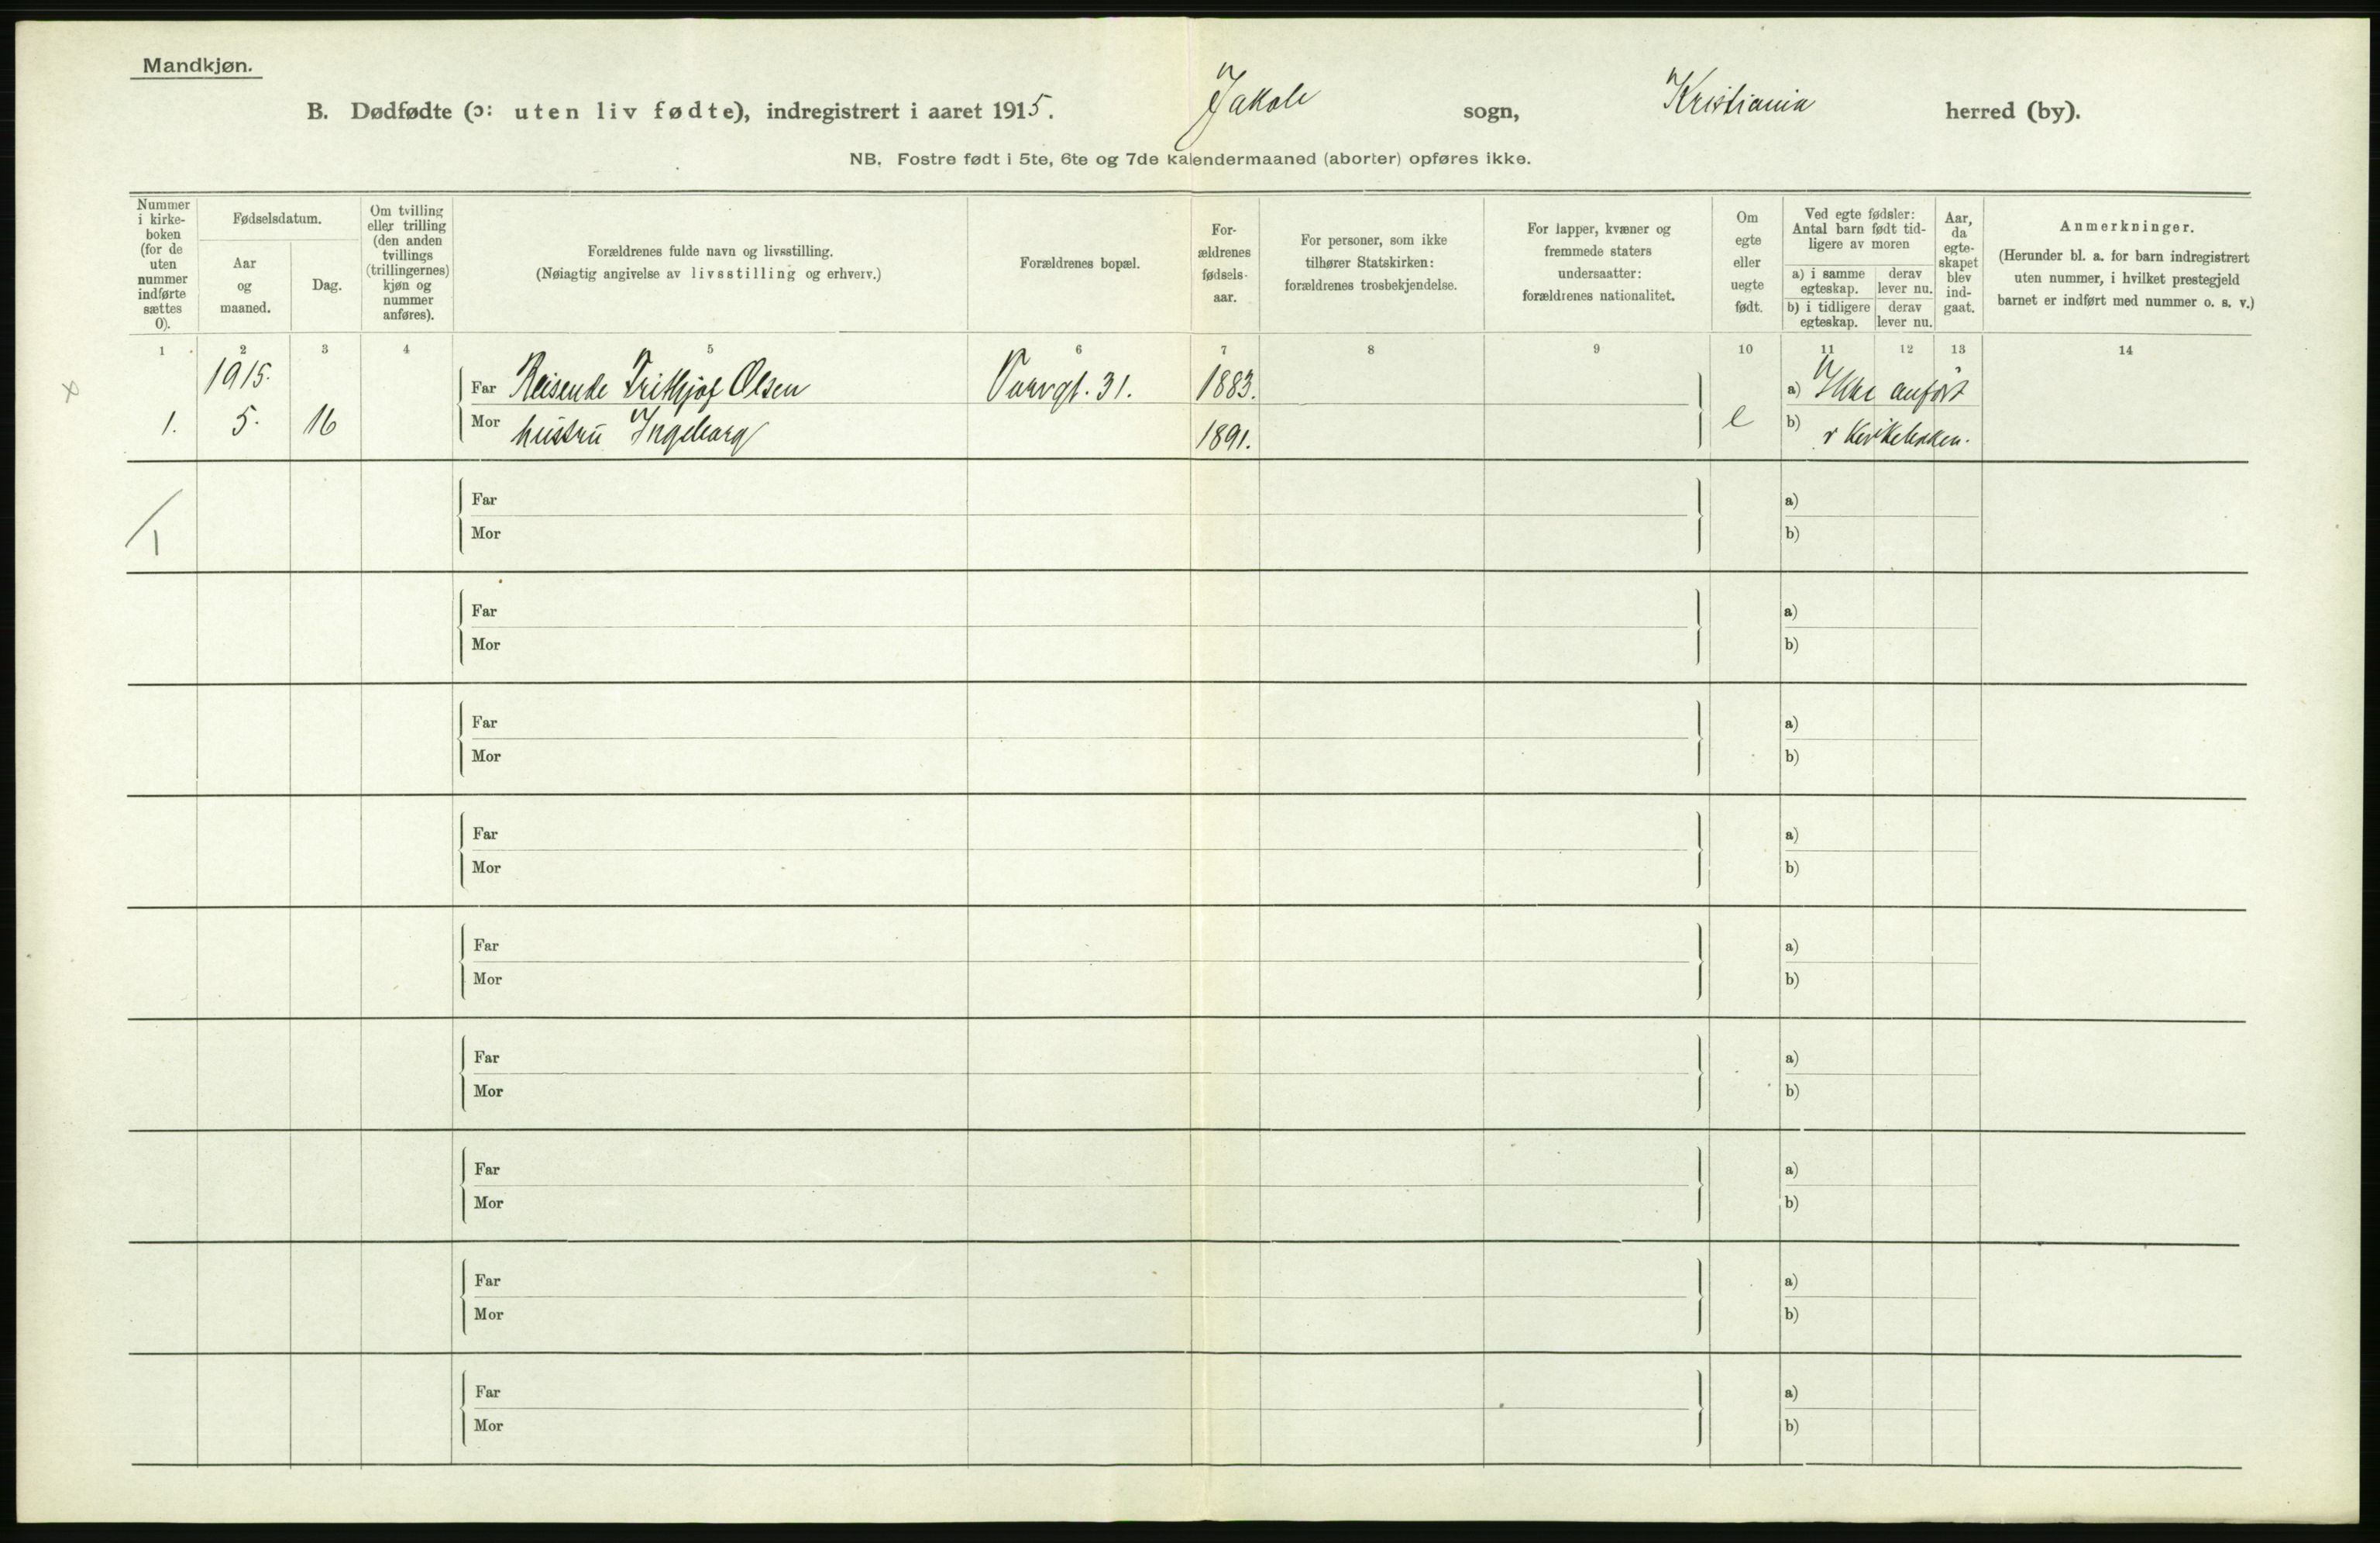 Mandkjøn.
B. Dødfødte (ɔ: uten liv fødte), indregistrert i aaret 1915. Jakob sogn, Kristiania herred (by).
NB. Fostre født i 5te, 6te og 7de kalendermaaned (aborter) opføres ikke.
Nummer i kirke-boken (for de uten nummer indførte sættes 0).
Fødselsdatum.
Aar og maaned.
Dag.
Om tvilling eller trilling (den anden tvillings (trillingernes) kjøn og nummer anføres).
Forældrenes fulde navn og livsstilling.
(Nøiagtig angivelse av livsstilling og erhverv.)
Forældrenes bopæl.
For-ældrenes fødsels-aar.
For personer, som ikke tilhører Statskirken: forældrenes trosbekjendelse.
For lapper, kvæner og fremmede staters undersaatter: forældrenes nationalitet.
Om egte eller uegte født.
Ved egte fødsler: Antal barn født tid-ligere av moren
a) i samme egteskap.
derav lever nu.
b) i tidligere egteskap.
derav lever nu.
Aar, da egte-skapet blev ind-gaat.
Anmerkninger.
(Herunder bl. a. for barn indregistrert uten nummer, i hvilket prestegjeld barnet er indført med nummer o. s. v.)
1 2 3 4 5 6 7 8 9 10 11 12 13 14
1915.
Far Reisende Frithjof Olsen 31. 1883. a) Ikke anført
1. 5. 16 Mor hustru Ingeborg 1891. e b) i kirkeboken.
Far a)
Mor b)
1
Far a)
Mor b)
Far a)
Mor b)
Far a)
Mor b)
Far a)
Mor b)
Far a)
Mor b)
Far a)
Mor b)
Far a)
Mor b)
Far a)
Mor b)